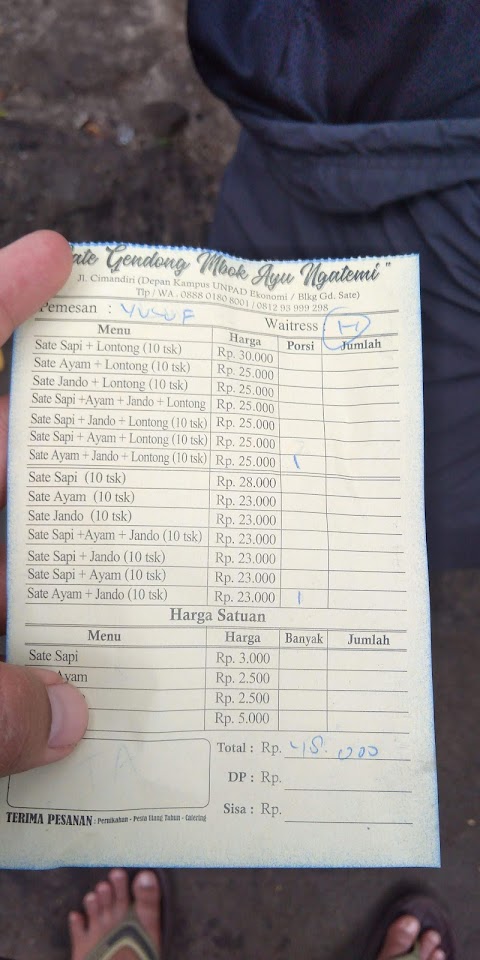 Gendong Mbok Ayu Ngatemi"
Jl. Cimandiri (Depan Kampus UNPAD Ekonomi / Blkg Gd. Sate)
Tlp / WA . 0888 0180 8001 / 0812 93 999 298
Pemesan : YUSUF Waitress H
Menu Harga Porsi Jumlah
Sate Sapi + Lontong (10 tsk) Rp. 30.000
Sate Ayam + Lontong (10 tsk) Rp. 25.000
Sate Jando + Lontong (10 tsk) Rp. 25.000
Sate Sapi +Ayam + Jando + Lontong Rp. 25.000
Sate Sapi + Jando + Lontong (10 tsk) Rp. 25.000
Sate Sapi + Ayam + Lontong (10 tsk) Rp. 25.000
Sate Ayam + Jando + Lontong (10 tsk) Rp. 25.000 1
Sate Sapi (10 tsk) Rp. 28.000
Sate Ayam (10 tsk) Rp. 23.000
Sate Jando (10 tsk) Rp. 23.000
Sate Sapi +Ayam + Jando (10 tsk) Rp. 23.000
Sate Sapi + Jando (10 tsk) Rp. 23.000
Sate Sapi + Ayam (10 tsk) Rp. 23.000
Sate Ayam + Jando (10 tsk) Rp. 23.000 1
Harga Satuan
Menu Harga Banyak Jumlah
Sate Sapi Rp. 3.000
Ayam Rp. 2.500
Rp. 2.500
Rp. 5.000
Total : Rp. 48.000
DP : Rp.
Sisa : Rp.
TERIMA PESANAN : Pernikahan - Pesta Ulang Tahun - Catering